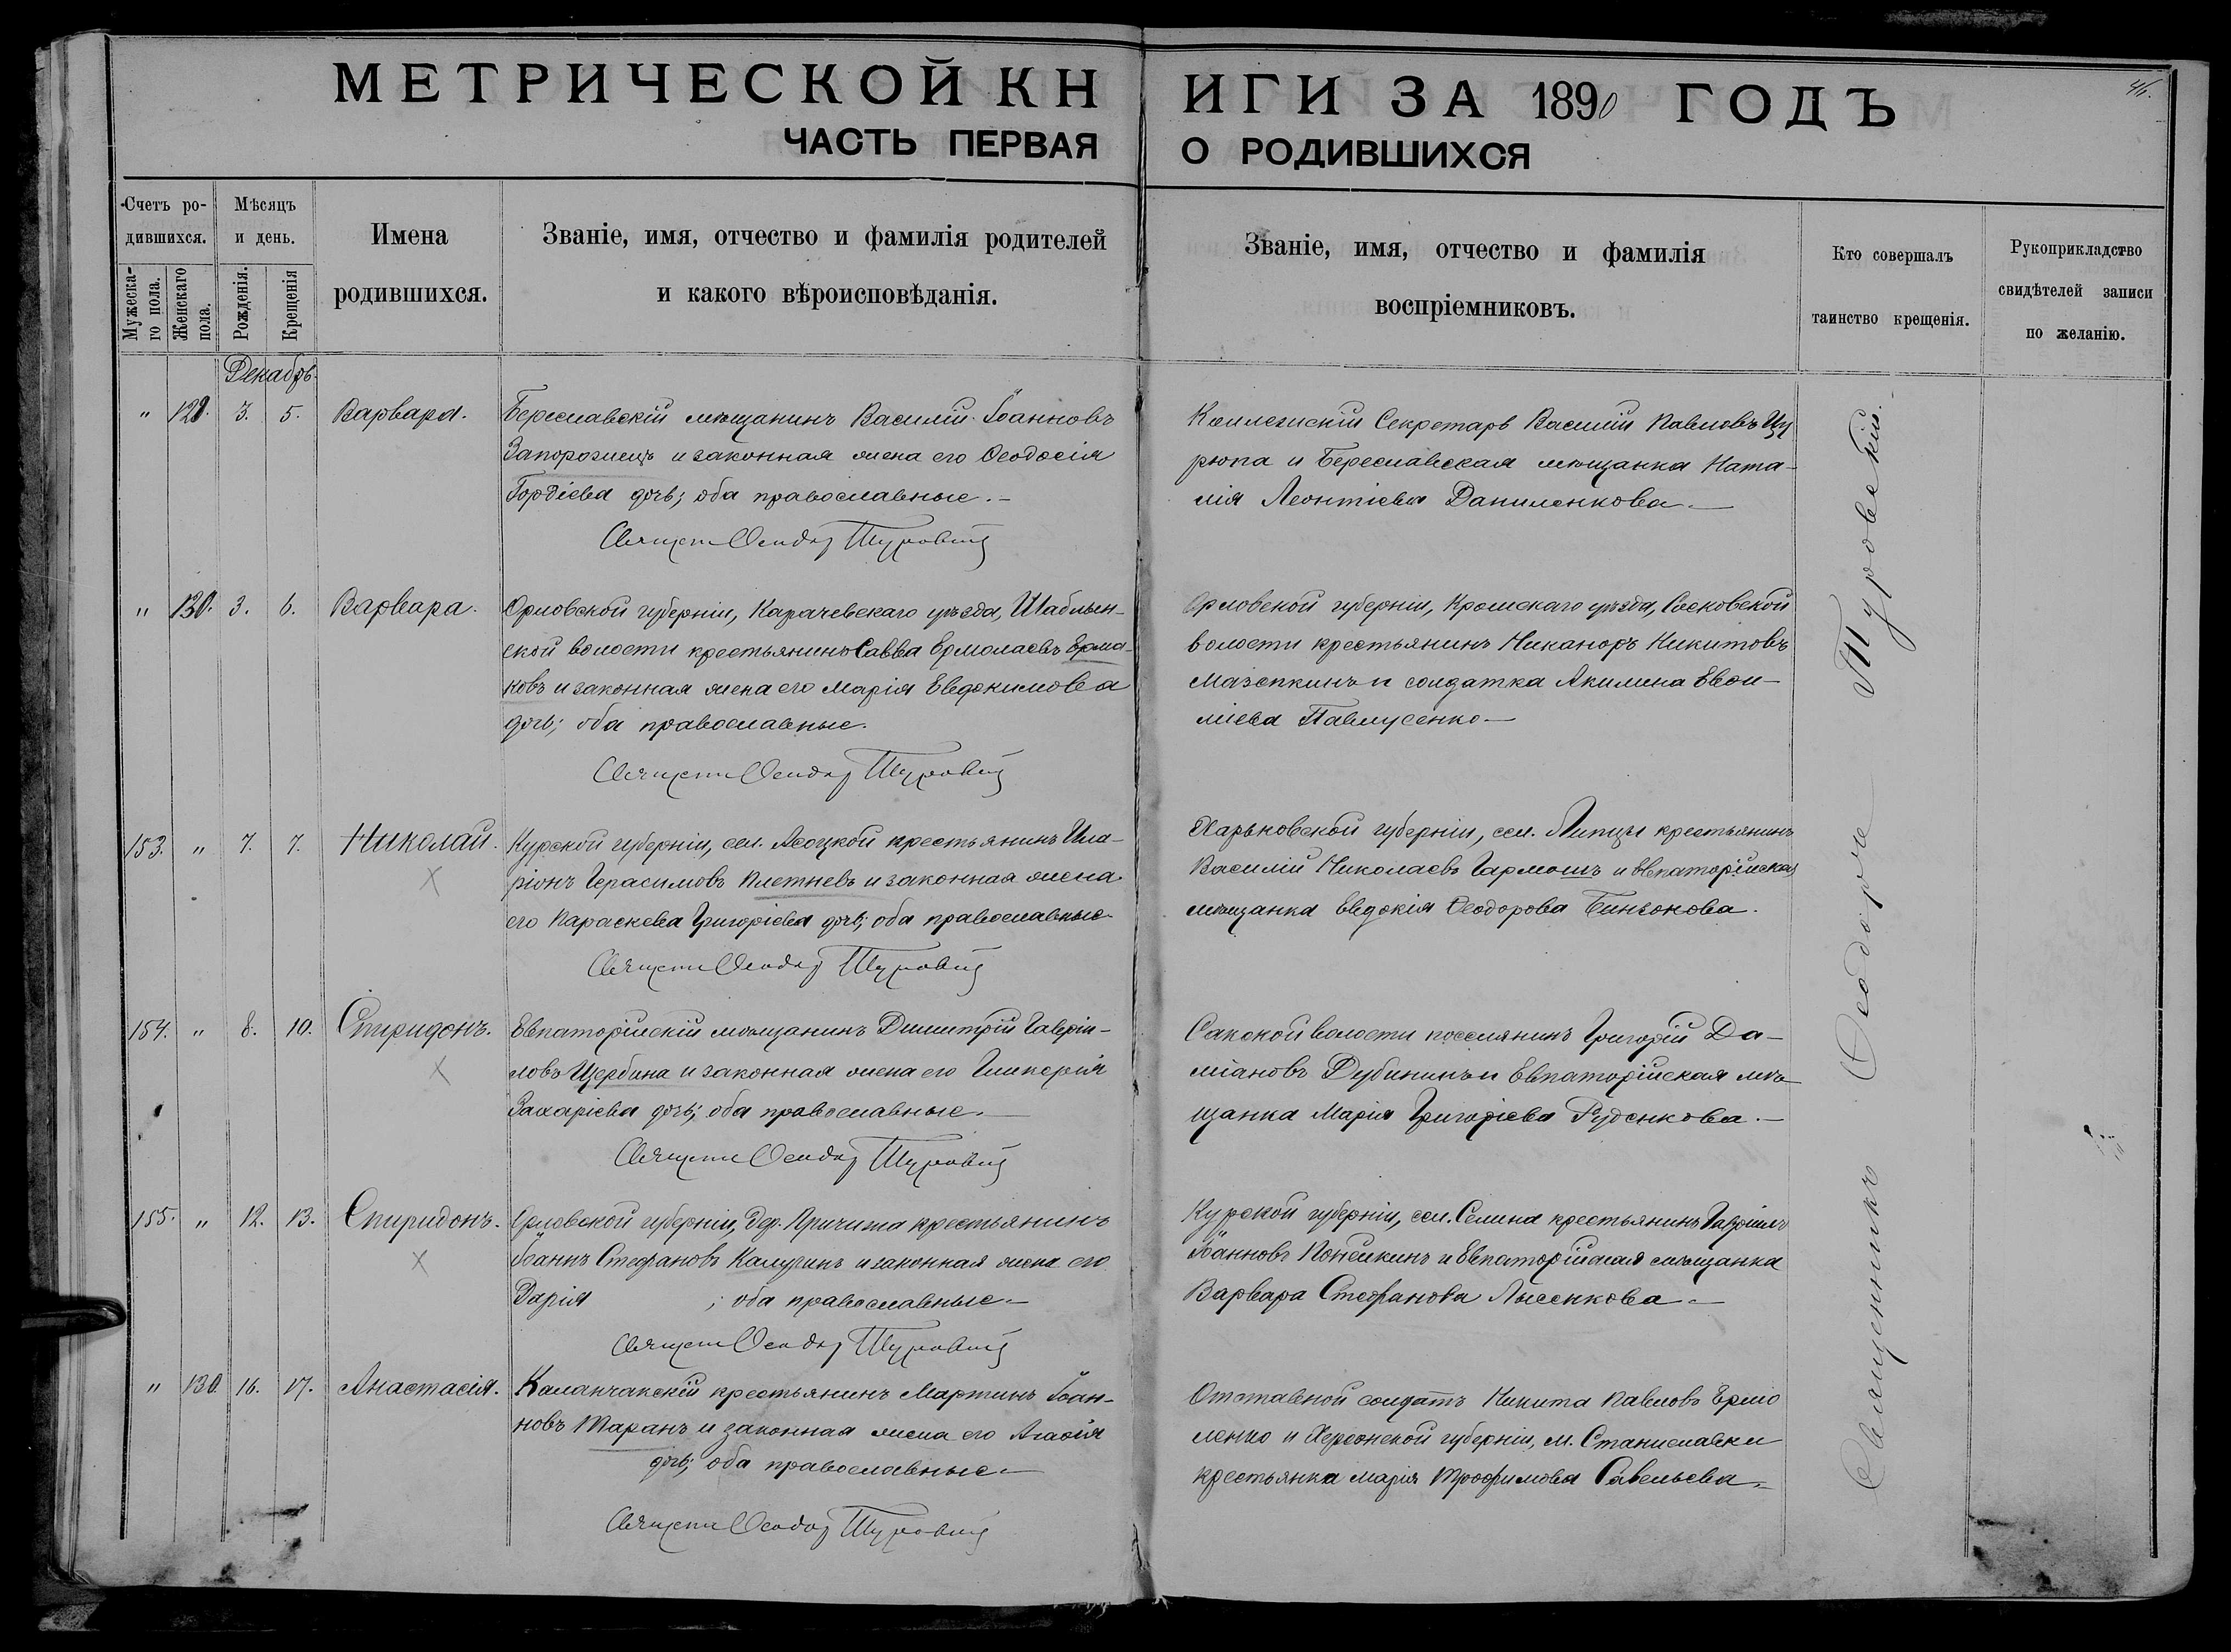 МЕТРИЧЕСКОЙ КНИГИ ЗА 1890 ГОДЪ
46.
ЧАСТЬ ПЕРВАЯ О РОДИВШИХСЯ
Счетъ ро-
дившихся.
Мужеска-
го пола.
Женскаго
пола.
Мѣсяцъ
и день.
Рожденія.
Крещенія
Имена
родившихся.
Званіе, имя, отчество и фамилія родителей
и какого вѣроисповѣданія.
Званіе, имя, отчество и фамилія
воспріемниковъ.
Кто совершалъ
таинство крещенія.
Рукоприкладство
свидѣтелей записи
по желанію.
Декабрь
" 129. 3. 5. Варвара.
Береславскій мѣщанинъ Василій Іоанновъ
Запорожецъ и законная жена его Ѳеодосія
Гордіева дочь; оба православные.
Священ Ѳеодор Туровскій
Коллежскій Секретарь Василій Павловъ Цу
рюпа и Береславская мѣщанка Ната-
лія Леонтіева Даниленкова
" 130. 3. 6. Варвара.
Орловской губерніи, Карачевскаго уѣзда, Шаблын-
ской волости крестьянинъ Савва Ермолаевъ Ерма-
ковъ и законная жена его Марія Евдокимова
дочь; оба православные.
Священ Ѳеодор Туровскій
Орловской губерніи, Кромскаго уѣзда, Сосковской
волости крестьянинъ Никаноръ Никитовъ
Мазепкинъ и солдатка Акилина Евѳи-
міева Павлусенко
153. " 7. 7. Николай.
Курской губерніи, сел. Асоцкой крестьянинъ Ила-
ріонъ Герасимовъ Плетневъ и законная жена
его Параскева Григоріева дочь; оба православные
Священ Ѳеодор Туровскій
Харьковской губерніи, сел. Липцы крестьянинъ
Василій Николаевъ Гармошъ и Евпаторійская
мѣщанка Евдокія Ѳеодорова
154. " 8. 10. Спиридонъ.
Евпаторійскій мѣщанинъ Димитрій Гавріи-
ловъ Щербина и законная жена его Гликерія
Захаріева дочь; оба православные.
Священ Ѳеодор Туровскій
Сакской волости поселянинъ Григорій Да-
міановъ Дубининъ и Евпаторійская мѣ-
щанка Марія Григоріева Руденкова.
155. " 12. 13. Спиридонъ.
Орловской губерніи, дер. крестьянинъ
Іоаннъ Стефановъ Калугинъ и законная жена его
Дарія ; оба православные
Священ Ѳеодор Туровскій
Курской губерніи, сел. Селина крестьянинъ Гавріилъ
Іоанновъ и Евпаторійская мѣщанка
Варвара Стефанова Лысенкова
" 130. 16. 17. Анастасія.
Каланчакскій крестьянинъ Мартинъ Іоан-
новъ Таранъ и законная жена его Агаѳія
дочь; оба православные
Священ Ѳеодор Туровскій
Отставной солдатъ Никита Павловъ Ермо
ленко и Херсонской губерніи, м. Станиславки
крестьянка Марія Трофимова Савельева
Священникъ Ѳеодоръ Туровскій.